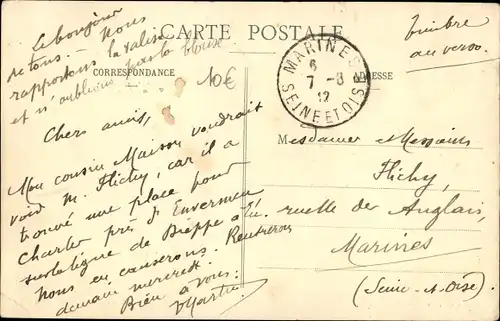 Le bonjour
de tous. - Nous
rapportons la valise
et n'oublions pas la blouse
CARTE POSTALE
Timbre
au verso.
CORRESPONDANCE
10€
MARINES
6
7 - 8
12
SEINE ET OISE
ADRESSE
Chers amis,
Mon cousin Maison voudrait
voir M. Flichy, car il a
trouvé une place pour
Charles près d'Envermeu
sur la ligne de Dieppe à Eu.
Nous en causerons. Rentrerons
demain mercredi.
Bien à vous.
Martin
Mesdames et Messieurs
Flichy,
ruelle des Anglais,
Marines
(Seine-&-Oise)